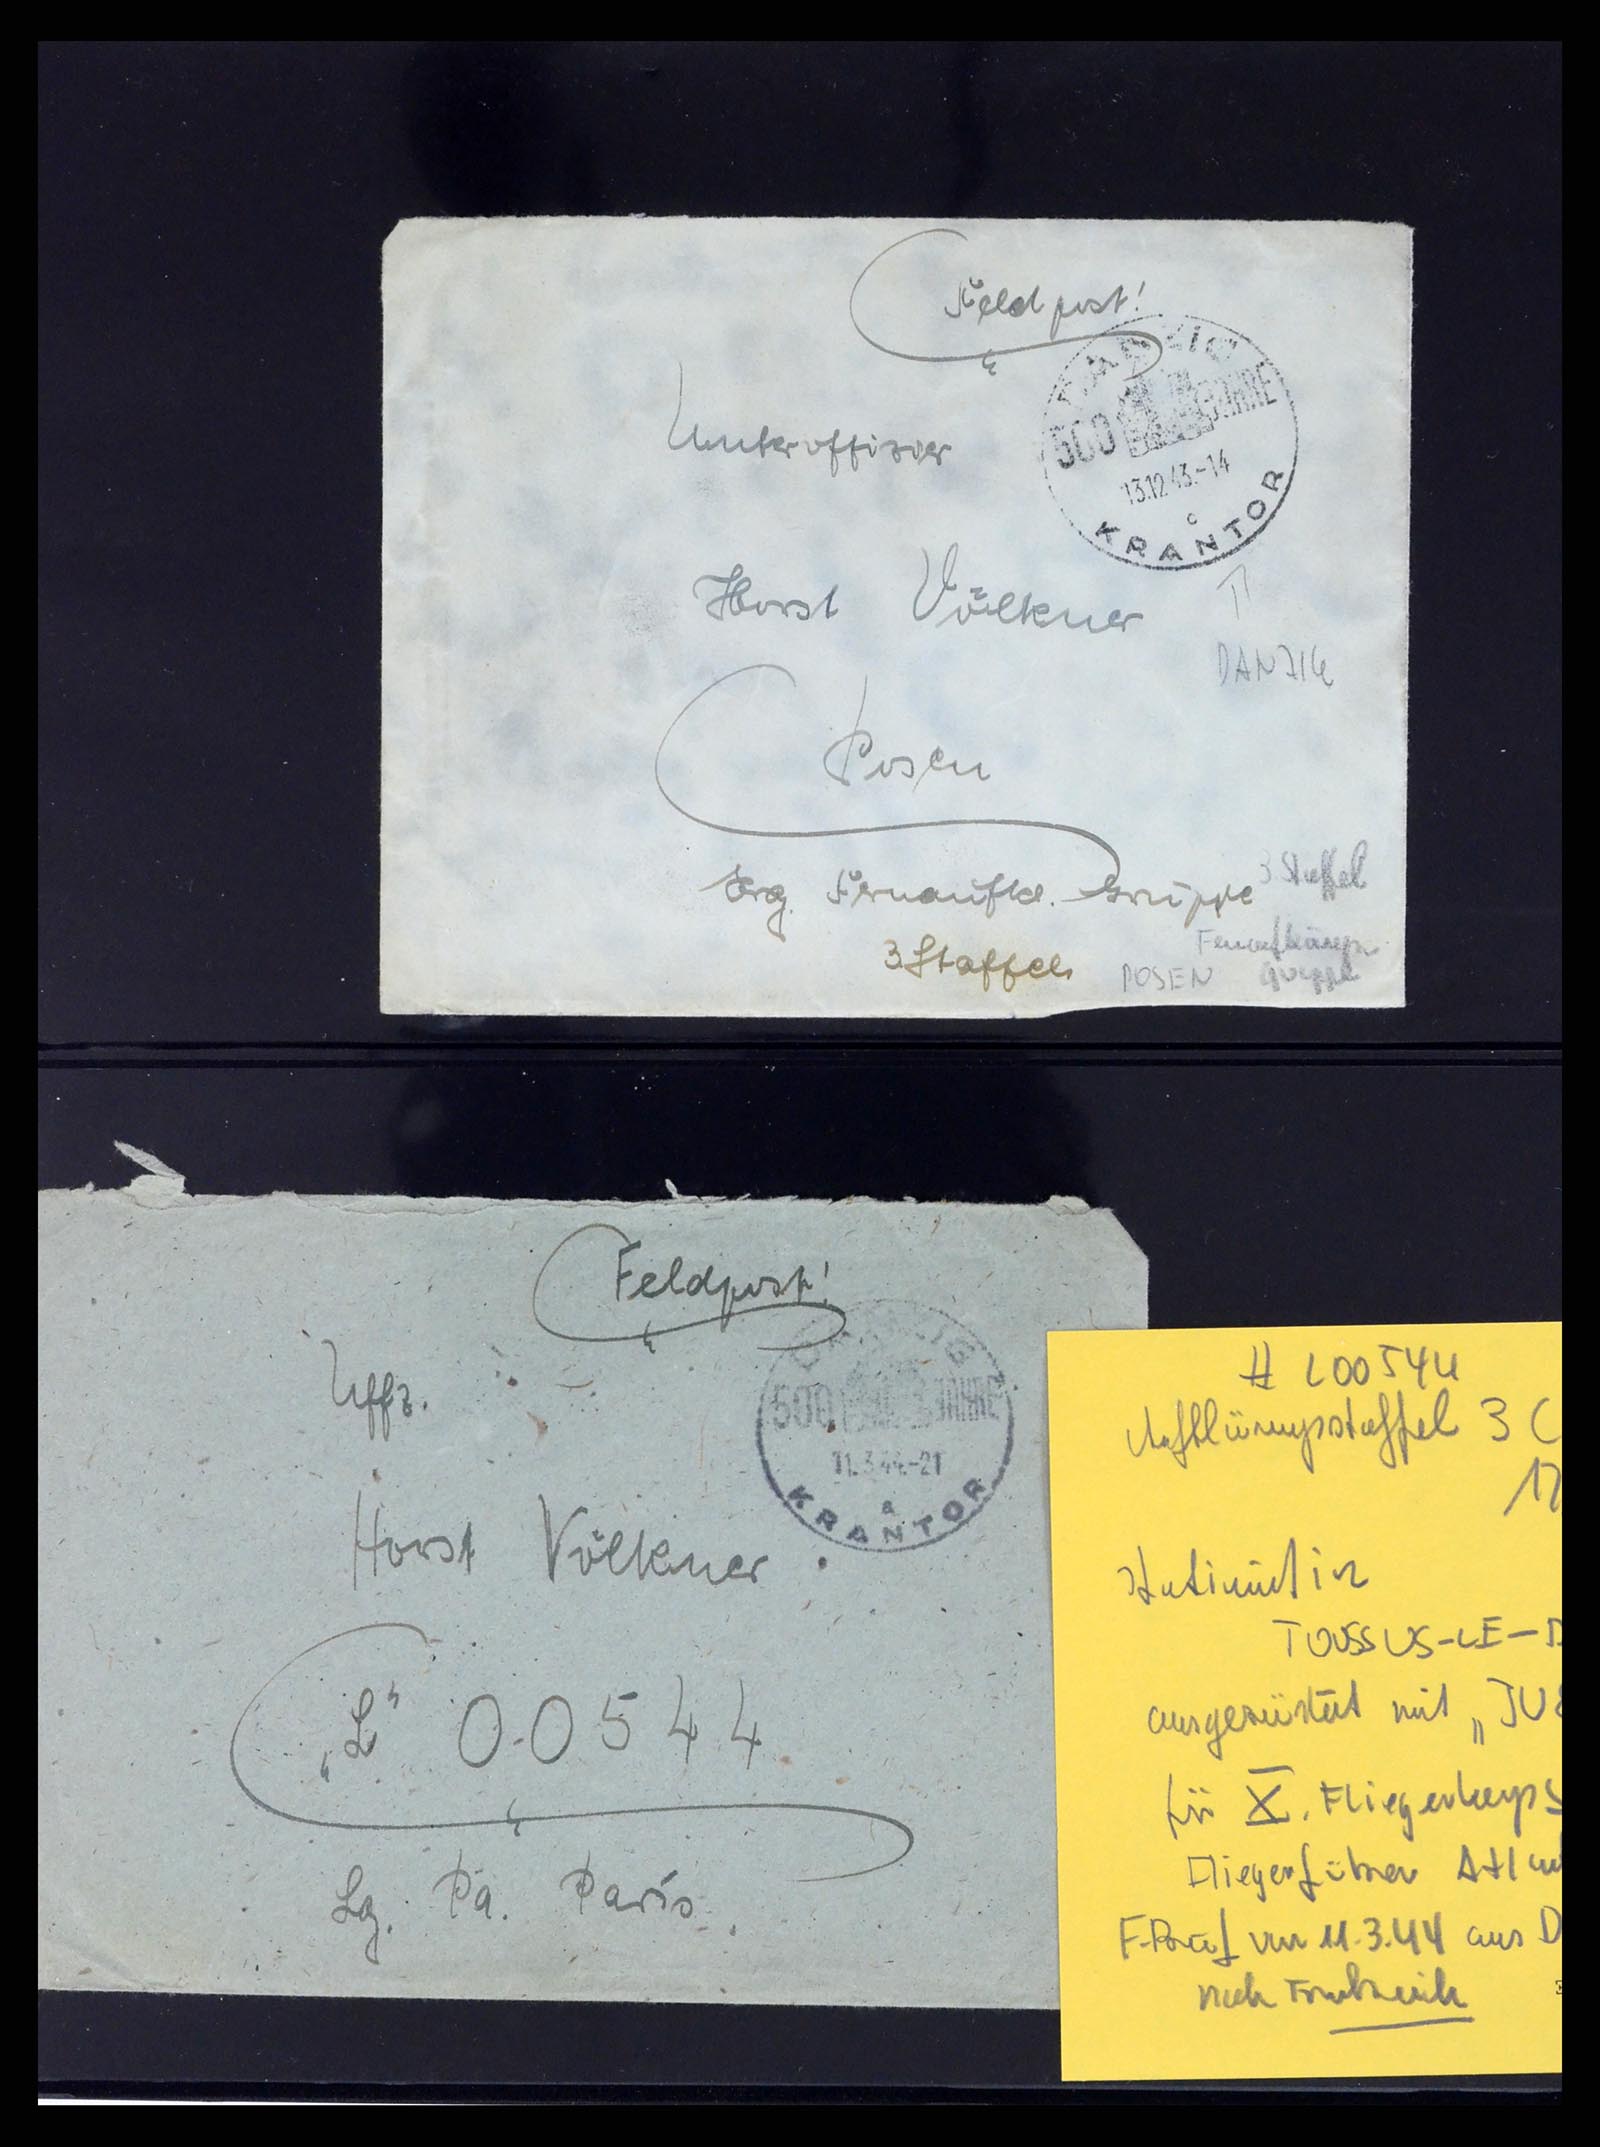 Feldpost!
DANZIG
500 JAHRE
13.12.43.-14
c
KRANTOR
Unteroffizier
Horst Völkner
DANZIG
Posen
Erg. Fernaufkl. Gruppe
3 Staffel
3 Staffel
Fernaufklärungs
POSEN Gruppe
Feldpost!
DANZIG
500 JAHRE
11.3.44.-21
a
KRANTOR
Uffz.
Horst Völkner
„L" 00544
Lg. Pa. Paris
# L00544
Aufklärungsstaffel 3 (
12
stationiert in
TOUSSUS-LE-
ausgerüstet mit „JU
für X. Fliegerkorps
Fliegerführer Atlan
F-Brief vom 11.3.44 aus D
nach Frankreich